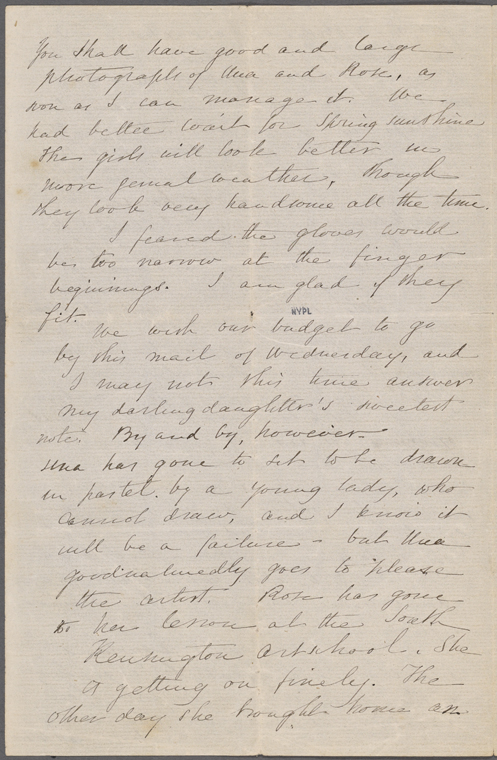 You shall have good and large
photographs of Una and Rose, as
soon as I can manage it. We
had better wait for Spring sunshine
The girls will look better in
more genial weather, though
they look very handsome all the time.
I feared the gloves would
be too narrow at the finger
beginnings. I am glad if they
fit.
NYPL
We wish our budget to go
by this mail of Wednesday, and
I may not this time answer
my darling daughter's sweetest
note. By and by, however.
Una has gone to sit to be drawn
in pastel by a young lady, who
cannot draw, and I know it
will be a failure - but Una
goodnaturedly goes to please
the artist. Rose has gone
to her lesson at the South
Kensington art school. She
is getting on finely. The
other day she brought home an